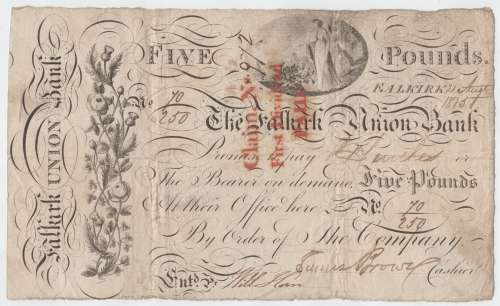 Falkirk UNION Bank
FIVE Pounds.
FALKIRK
No. 70/250
The Falkirk Union Bank
Promise to pay or
The Bearer on demand Five Pounds
At their Office here No. 70/250
By Order of The Company
Entd. Cashier
Claim No. 917
First Dividend
PAID